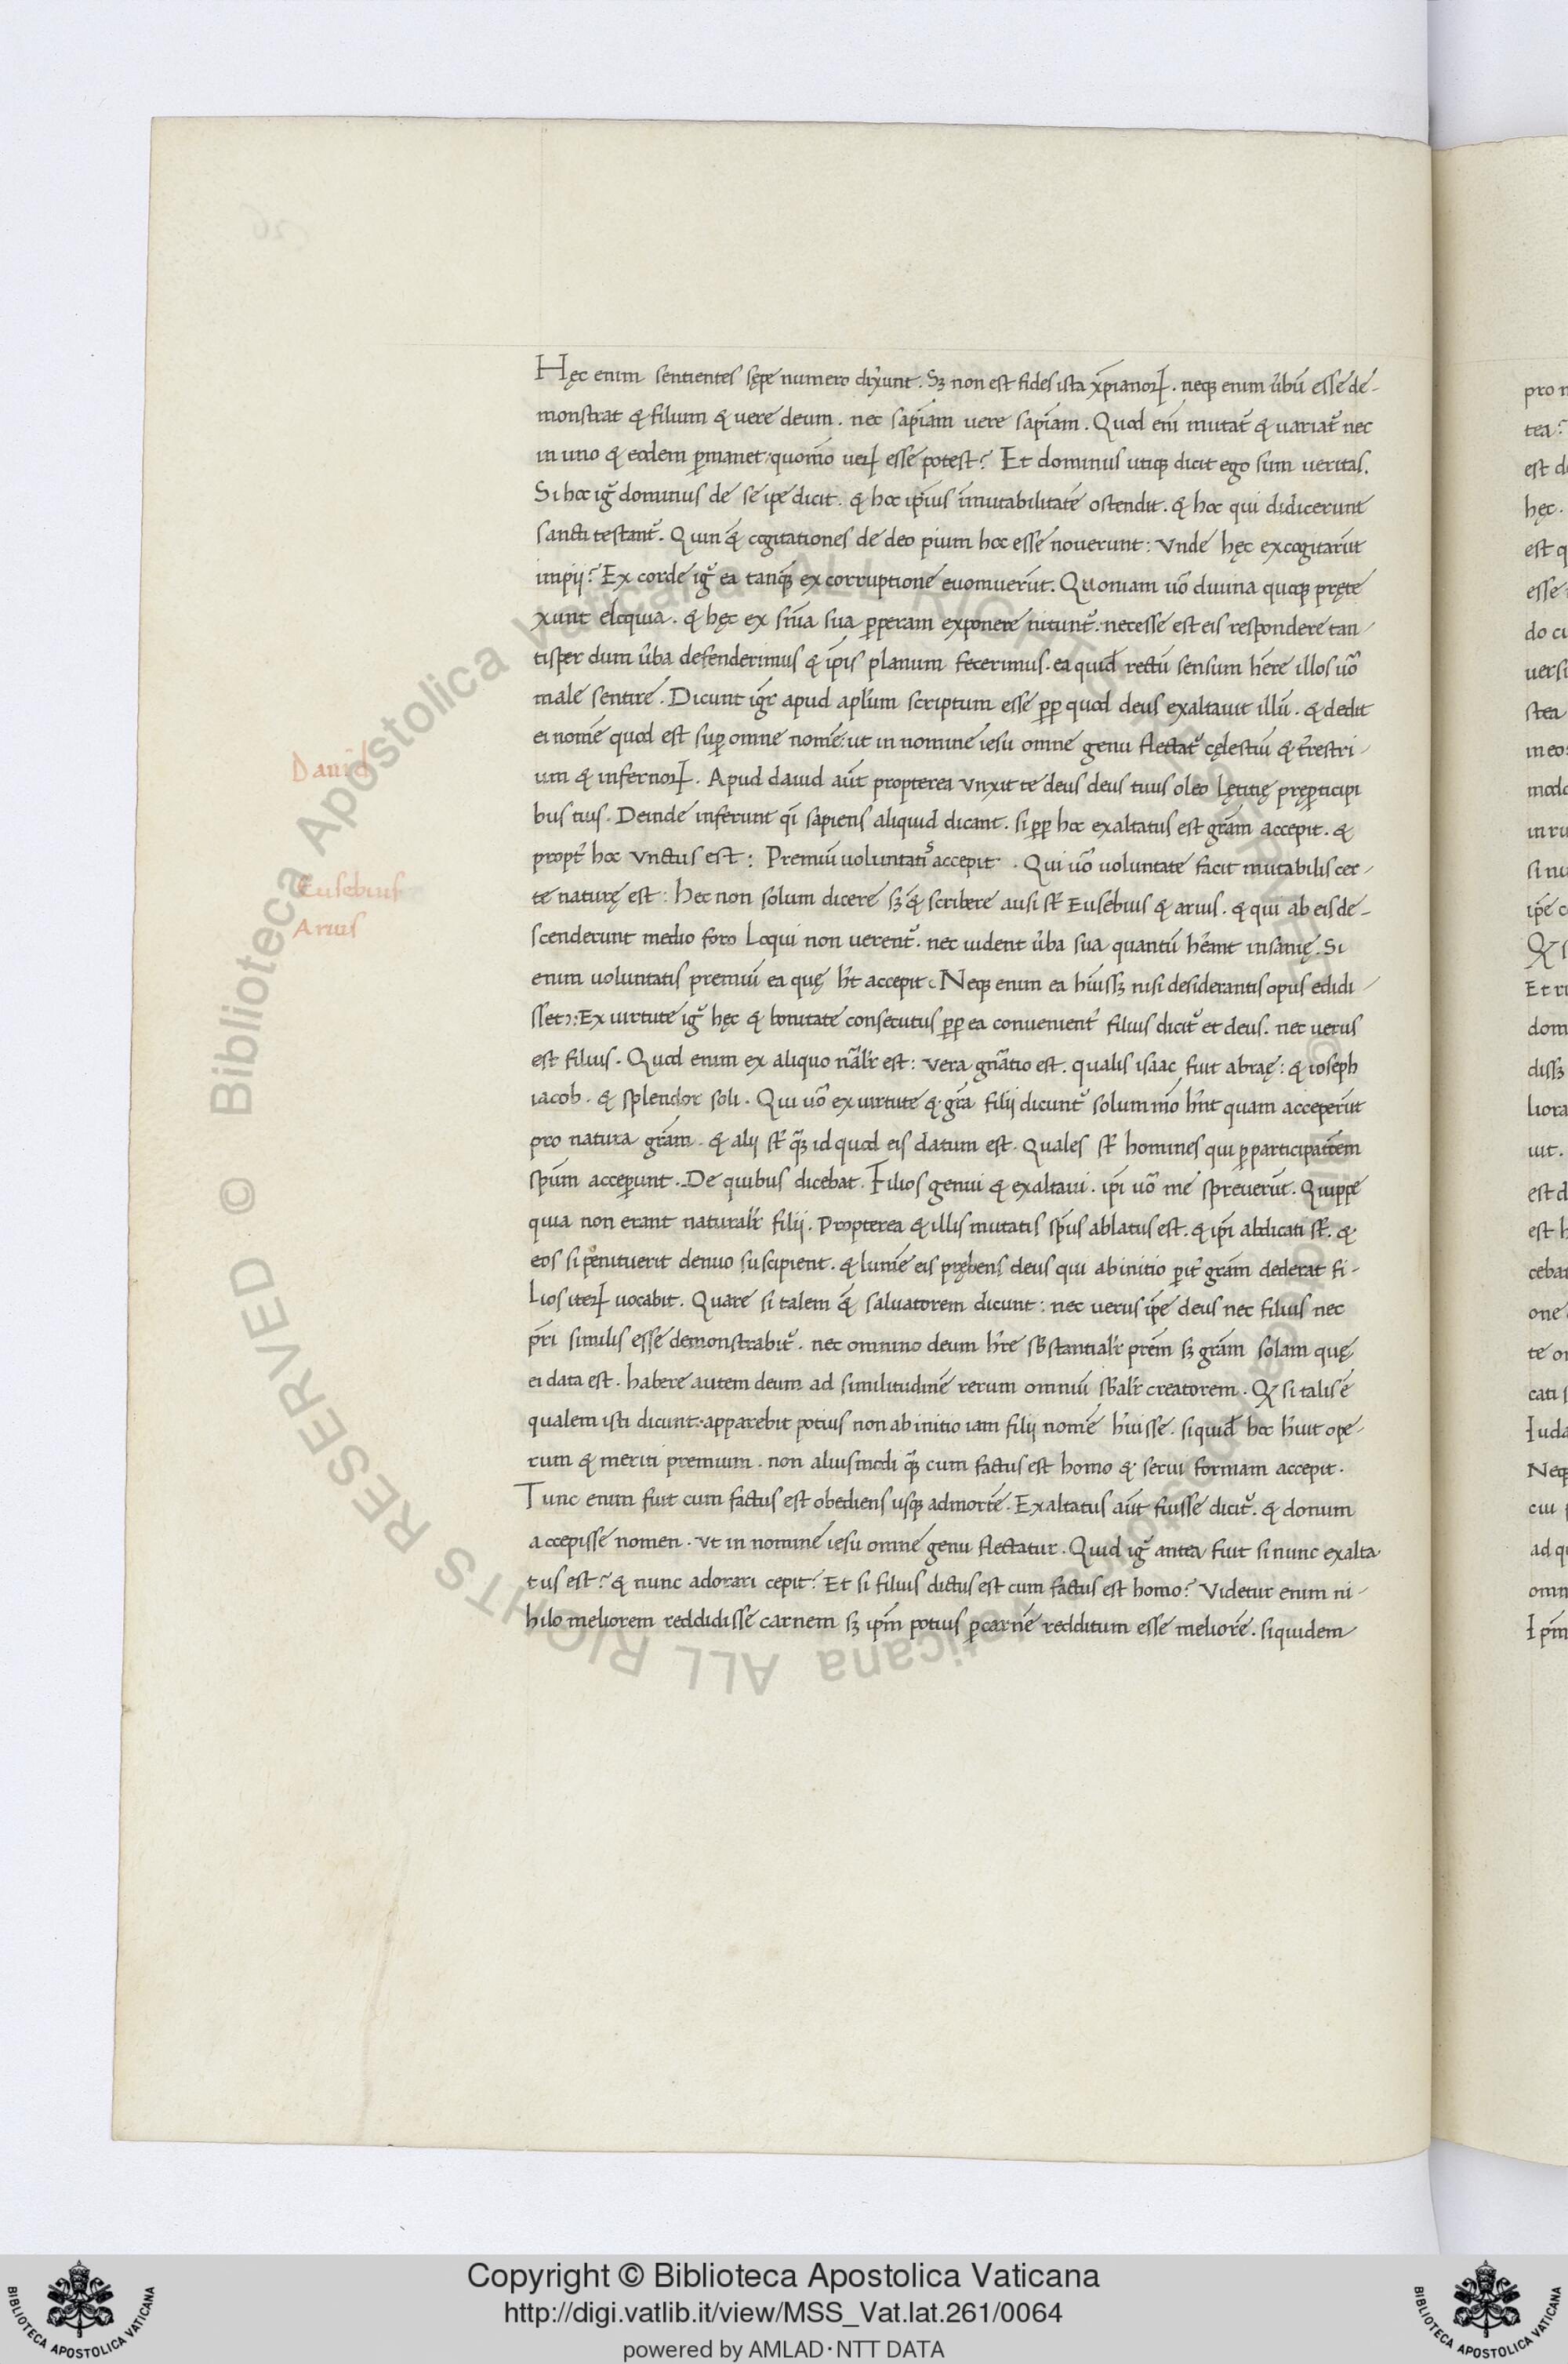 Hęc enim sentientes sępe numero dix̃unt. Sꝫ non est fides ista xp̃ianoꝝ. neqꝫ enim ũbũ esse de-
monstrat & filium & vere deum. nec sap̃iam uere sap̃iam. Quod em̃ mutat᷑ & uariat᷑ nec
in uno & eodem ꝑmanet. quom̃o ueꝝ esse potest? Et dominus utiqꝫ dicit ego sum veritas.
Si hoc ig̃ dominus de se ip̃e dicit. & hoc ip̃ius ĩmutabilitatẽ ostendit. & hoc qui didicerunt
sancti testant᷑. Quin & cogitationes de deo pium hoc esse nouerunt: Vnde hęc excogitarũt
impij? Ex corde ig̃ ea tanꝙ̃ ex corruptione euomuerũt. Quoniam uõ diuina quoqꝫ pręte
xunt eloquia. & hęc ex sñia sua ꝑperam exponere nitunt᷑. necesse est eis respondere tan-
tisper dum ũba defenderimus & ip̃is planum fecerimus. ea quid̃ rectũ sensum h̃ere illos uõ
male sentire. Dicunt igr̃ apud apl̃um scriptum esse ꝓp̃ quod deus exaltauit illũ. & dedit
ei nomẽ quod est suꝑ omne nomẽ: ut in nomine iesu omne genu flectat᷑ cęlestiũ & t̃restri-
um & infernoꝝ. Apud dauid aũt propterea Vnxit te deus deus tuus oleo lętitię pręꝑticipi
David
bus tuis. Deinde inferunt q̃i sapiens aliquid dicant. si ꝓp̃ hoc exaltatus est gr̃am accepit. &
propt̃ hoc Vnctus est: Premiũ uoluntatis accepit. Qui uõ voluntate facit mutabilis cer-
te naturę est: hec non solum dicere sꝫ & scribere ausi st̃ Eusebius & arius. & qui ab eis de-
Eusebius
Arius
scenderunt medio foro Loqui non uerent᷑. nec uident ũba sua quantũ h̃eant insanię. Si
enim voluntatis premiũ ea quę h̃t accepit (Neqꝫ enim ea h̃uissꝫ nisi desiderantis opus edidi-
sset): Ex uirtute ig̃ hęc & bonitate consecutus ꝓp̃ ea conuenient᷑ filius dicit᷑ et deus. nec verus
est filius. Quod enim ex aliquo nãlr̃ est: vera gñatio est. qualis isaac fuit abraę: & ioseph
iacob. & splendor soli. Qui uõ ex uirtute & gr̃a filij dicunt᷑ solum mõ h̃nt quam acceperũt
pro natura gr̃am. & alij st̃ q̃ꝫ id quod eis datum est. Quales st̃ homines qui ꝑ participatiõem
sp̃um acceꝑunt. De quibus dicebat. Filios genui & exaltaui. ip̃i uõ me spreuerũt. Quippe
quia non erant naturalr̃ filij. Propterea & illis mutatis sp̃us ablatus est. & ip̃i abdicati st̃. &
eos si pęnituerit denuo suscipient. & lumẽ eis prębens deus qui ab initio ꝑit᷑ gr̃am dederat fi-
lios iteꝝ uocabit. Quare si talem & saluatorem dicunt: nec uerus ip̃e deus nec filius nec
pr̃i similis esse demonstrabit᷑. nec omnino deum h̃re sb̃stantialr̃ pr̃em sꝫ gr̃am solam quę
ei data est. habere autem deum ad similitudinẽ rerum omniũ sb̃alr̃ creatorem. Qꝫ si talis ẽ
qualem isti dicunt: apparebit potius non ab initio iam filij nomẽ h̃uisse. siquid̃ hoc h̃uit ope-
rum & meriti premium. non aliusmodi q̃ꝫ cum factus est homo & serui formam accepit.
Tunc enim fuit cum factus est obediens usqꝫ ad mortẽ. Exaltatus aũt fuisse dicit᷑. & donum
accepisse nomen. vt in nomine iesu omne genu flectatur. Quid ig̃ antea fuit si nunc exalta-
tus est? & nunc adorari cepit? Et si filius dictus est cum factus est homo? Videtur enim ni-
hilo meliorem reddidisse carnem sꝫ ip̃m potius ꝑ carnẽ redditum esse meliorẽ. siquidem
Copyright © Biblioteca Apostolica Vaticana
http://digi.vatlib.it/view/MSS_Vat.lat.261/0064
powered by AMLAD·NTT DATA
BIBLIOTECA APOSTOLICA VATICANA
BIBLIOTECA APOSTOLICA VATICANA